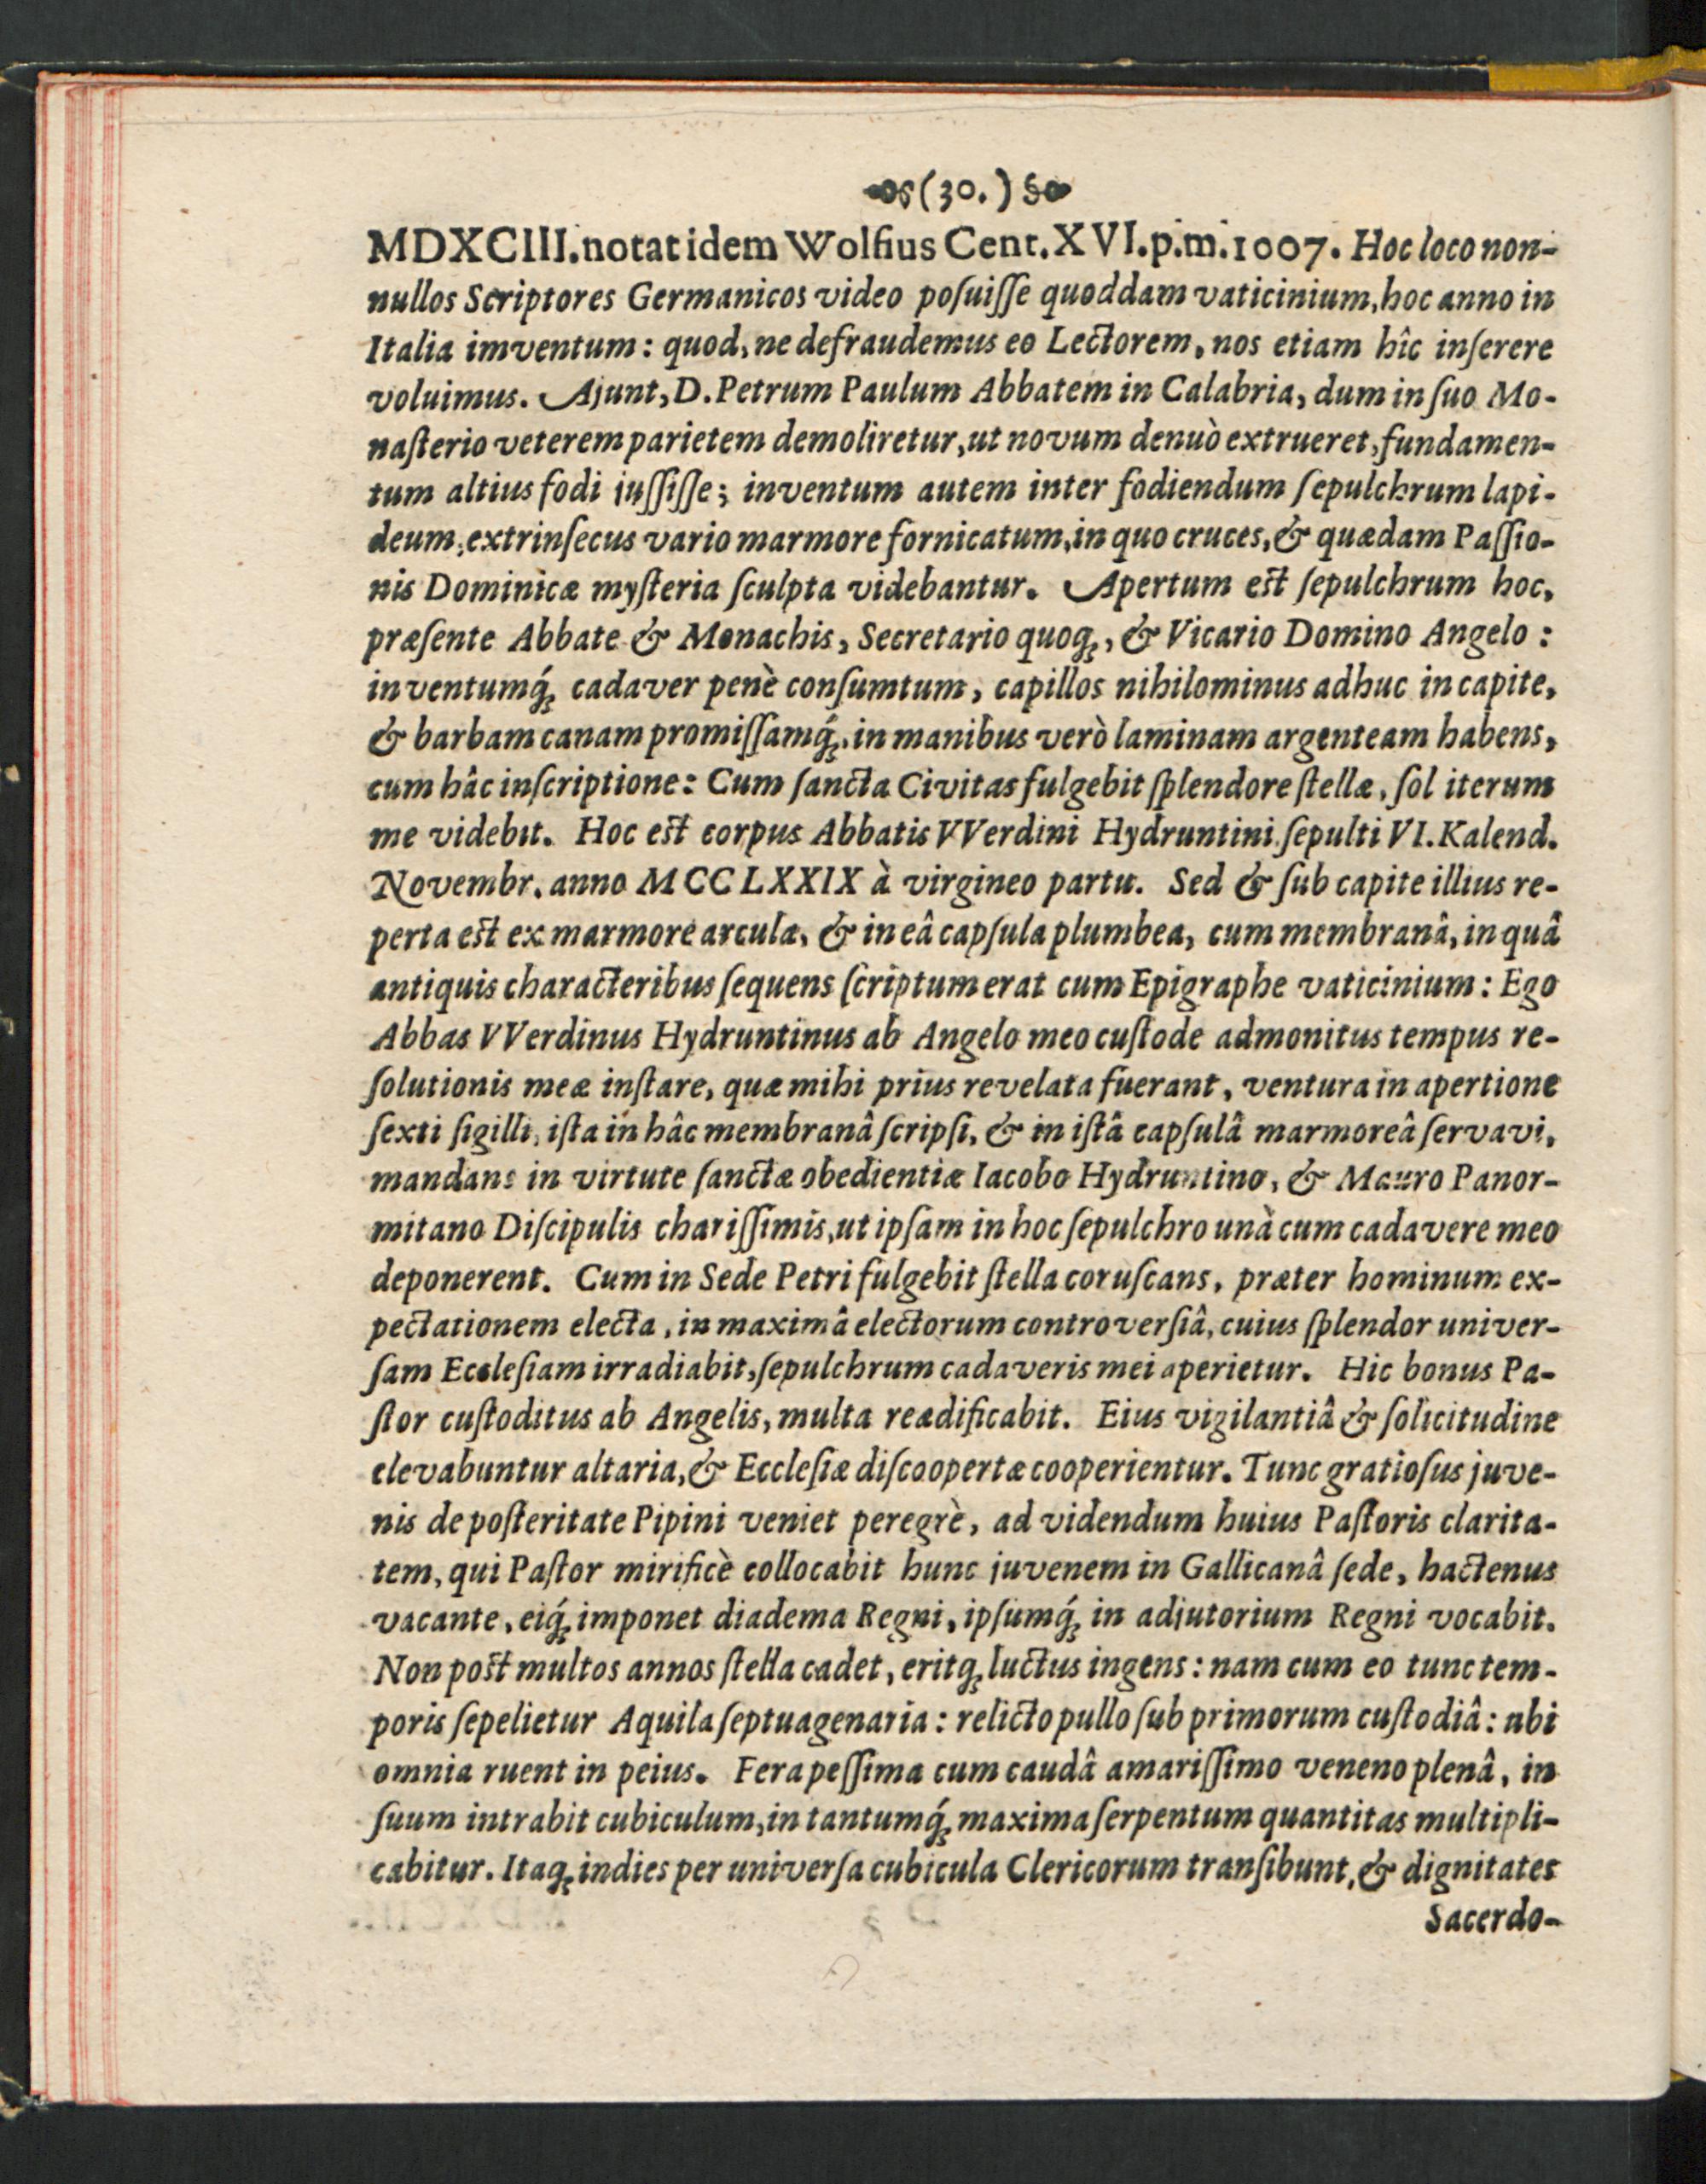 (30.)
MDXCIII. notat idem Wolfius Cent. XVI. p.m. 1007. Hoc loco non-
nullos Scriptores Germanicos video poſuiſſe quoddam vaticinium, hoc anno in
Italia imventum: quod, ne defraudemus eo Lectorem, nos etiam hîc inſerere
voluimus. Ajunt, D. Petrum Paulum Abbatem in Calabria, dum in ſuo Mo-
naſterio veterem parietem demoliretur, ut novum denuò extrueret, fundamen-
tum altius fodi juſſiſſe; inventum autem inter fodiendum ſepulchrum lapi-
deum, extrinſecus vario marmore fornicatum, in quo cruces, & quædam Paſſio-
nis Dominicæ myſteria ſculpta videbantur. Apertum eſt ſepulchrum hoc,
præſente Abbate & Monachis, Secretario quoq;, & Vicario Domino Angelo:
inventumq́; cadaver penè conſumtum, capillos nihilominus adhuc in capite,
& barbam canam promiſſamq́;, in manibus verò laminam argenteam habens,
cum hâc inſcriptione: Cum ſancta Civitas fulgebit ſplendore ſtellæ, ſol iterum
me videbit. Hoc eſt corpus Abbatis VVerdini Hydruntini ſepulti VI. Kalend.
Novembr. anno MCCLXXIX à virgineo partu. Sed & ſub capite illius re-
perta eſt ex marmore arcula, & in eâ capſula plumbea, cum membranâ, in quâ
antiquis characteribus ſequens ſcriptum erat cum Epigraphe vaticinium: Ego
Abbas VVerdinus Hydruntinus ab Angelo meo cuſtode admonitus tempus re-
ſolutionis meæ inſtare, quæ mihi prius revelata fuerant, ventura in apertione
ſexti ſigilli, iſta in hâc membranâ ſcripſi, & in iſtâ capſulâ marmoreâ ſervavi,
mandans in virtute ſanctæ obedientiæ Iacobo Hydruntino, & Mauro Panor-
mitano Diſcipulis chariſſimis, ut ipſam in hoc ſepulchro unà cum cadavere meo
deponerent. Cum in Sede Petri fulgebit ſtella coruſcans, præter hominum ex-
pectationem electa, in maximâ electorum controverſiâ, cuius ſplendor univer-
ſam Eccleſiam irradiabit, ſepulchrum cadaveris mei aperietur. Hic bonus Pa-
ſtor cuſtoditus ab Angelis, multa reædificabit. Eius vigilantiâ & ſolicitudine
elevabuntur altaria, & Eccleſiæ diſcoopertæ cooperientur. Tunc gratioſus juve-
nis de poſteritate Pipini veniet peregrè, ad videndum huius Paſtoris clarita-
tem, qui Paſtor mirificè collocabit hunc juvenem in Gallicanâ ſede, hactenus
vacante, eiq́; imponet diadema Regni, ipſumq́; in adjutorium Regni vocabit.
Non poſt multos annos ſtella cadet, eritq; luctus ingens: nam cum eo tunc tem-
poris ſepelietur Aquila ſeptuagenaria: relicto pullo ſub primorum cuſtodiâ: ubi
omnia ruent in peius. Fera peſſima cum caudâ amariſſimo veneno plenâ, in
ſuum intrabit cubiculum, in tantumq́; maxima ſerpentum quantitas multipli-
cabitur. Itaq; indies per univerſa cubicula Clericorum tranſibunt, & dignitates
Sacerdo-